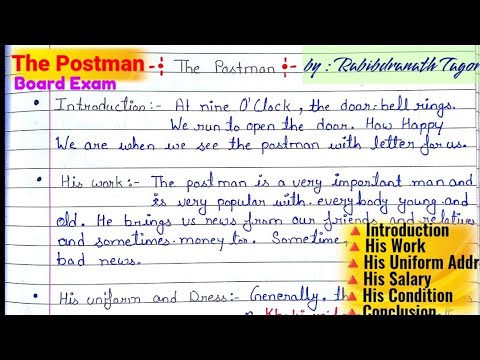 The Postman
Board Exam
The Postman
by : Rabibdranath Tagor
Introduction:- At nine O'Clock, the door-bell rings.
We run to open the door. How Happy
We are when we see the postman with letter for us.
His work:- The postman is a very important man and
is very popular with everybody young and
old. He brings us news from our friends and relatives
and sometimes money too. Sometime,
bad news.
His uniform and Dress:- Generally, th
Introduction
His Work
His Uniform Addr
His Salary
His Condition
Conclusion